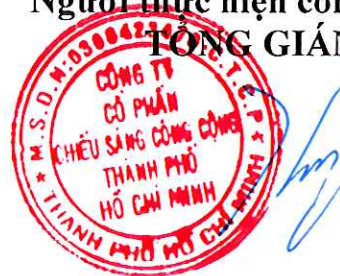 Người thực hiện
TỔNG GIÁM
M.S.D.N:
C.T.C.P
CÔNG TY
CỔ PHẦN
CHIẾU SÁNG CÔNG CỘNG
THÀNH PHỐ
HỒ CHÍ MINH
THÀNH PHỐ HỒ CHÍ MINH